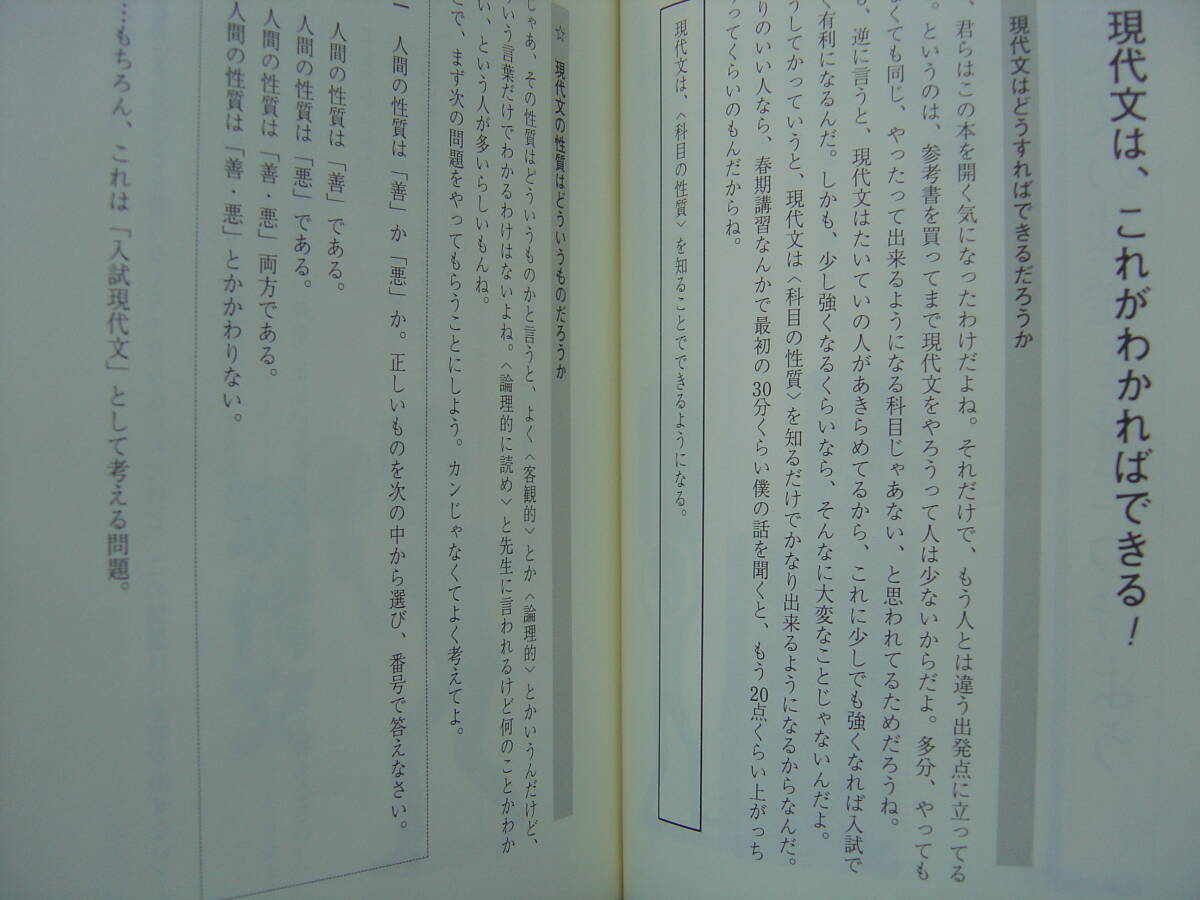 現代文は、これがわかればできる!
現代文はどうすればできるだろうか
、君らはこの本を開く気になったわけだよね。それだけで、もう人とは違う出発点に立ってる
。というのは、参考書を買ってまで現代文をやろうって人は少ないからだよ。多分、やっても
なくても同じ、やったって出来るようになる科目じゃあない、と思われてるためだろうね。
も、逆に言うと、現代文はたいていの人があきらめてるから、これに少しでも強くなれば入試で
く有利になるんだ。しかも、少し強くなるくらいなら、そんなに大変なことじゃないんだよ。
うしてかっていうと、現代文は〈科目の性質〉を知るだけでかなり出来るようになるからなんだ。
りのいい人なら、春期講習なんかで最初の30分くらい僕の話を聞くと、もう20点くらい上がっち
ゃってくらいのもんだからね。
現代文は、〈科目の性質〉を知ることでできるようになる。
☆ 現代文の性質はどういうものだろうか
じゃあ、その性質はどういうものかと言うと、よく〈客観的〉とか〈論理的〉とかいうんだけど、
いう言葉だけでわかるわけはないよね。〈論理的に読め〉と先生に言われるけど何のことかわか
い、という人が多いらしいもんね。
こで、まず次の問題をやってもらうことにしよう。カンじゃなくてよく考えてよ。
人間の性質は「善」か「悪」か。正しいものを次の中から選び、番号で答えなさい。
人間の性質は「善」である。
人間の性質は「悪」である。
人間の性質は「善・悪」両方である。
人間の性質は「善・悪」とかかわりない。
…もちろん、これは「入試現代文」として考える問題。